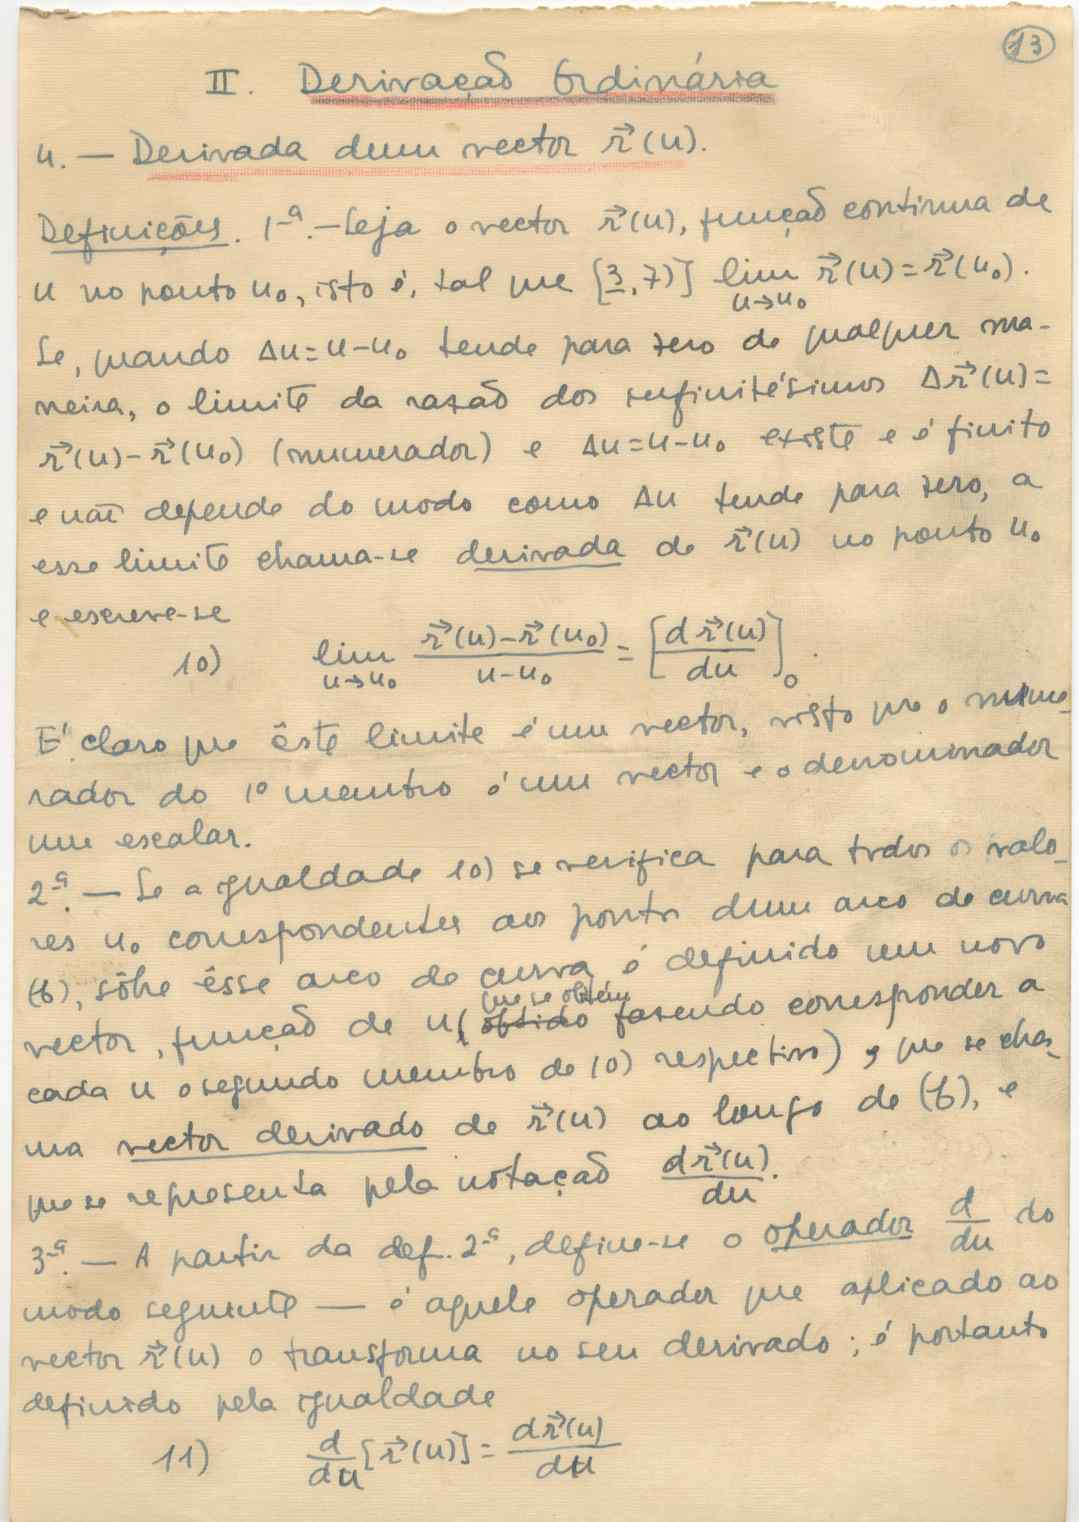 13
II. Derivação Ordinária
4. — Derivada dum vector r⃗(u).
Definições. 1ª. — Seja o vector r⃗(u), função contínua de
u no ponto u₀, isto é, tal que [3, 7)] lim r⃗(u) = r⃗(u₀).
u→u₀
Se, quando Δu = u–u₀ tende para zero de qualquer ma-
neira, o limite da razão dos infinitésimos Δr⃗(u) =
r⃗(u) – r⃗(u₀) (numerador) e Δu = u–u₀ existe e é finito
e não depende do modo como Δu tende para zero, a
esse limite chama-se derivada de r⃗(u) no ponto u₀
e escreve-se
10) lim_{u→u₀} (r⃗(u) – r⃗(u₀))/(u–u₀) = [d r⃗(u)/du]₀.
É claro que êste limite é um vector, visto que o nume-
rador do 1º membro é um vector e o denominador
um escalar.
2ª. — Se a igualdade 10) se verifica para todos os valo-
res u₀ correspondentes aos pontos dum arco de curva
(b), sôbre êsse arco de curva é definido um novo
que se obtém
vector, função de u (obtido fazendo corresponder a
cada u o segundo membro de 10) respectivo), que se cha-
ma vector derivado de r⃗(u) ao longo de (b), e
que se representa pela notação dr⃗(u)/du.
3ª. — A partir da def. 2ª, define-se o operador d/du do
modo seguinte — é aquele operador que aplicado ao
vector r⃗(u) o transforma no seu derivado; é portanto
definido pela igualdade
11) d/du [r⃗(u)] = dr⃗(u)/du